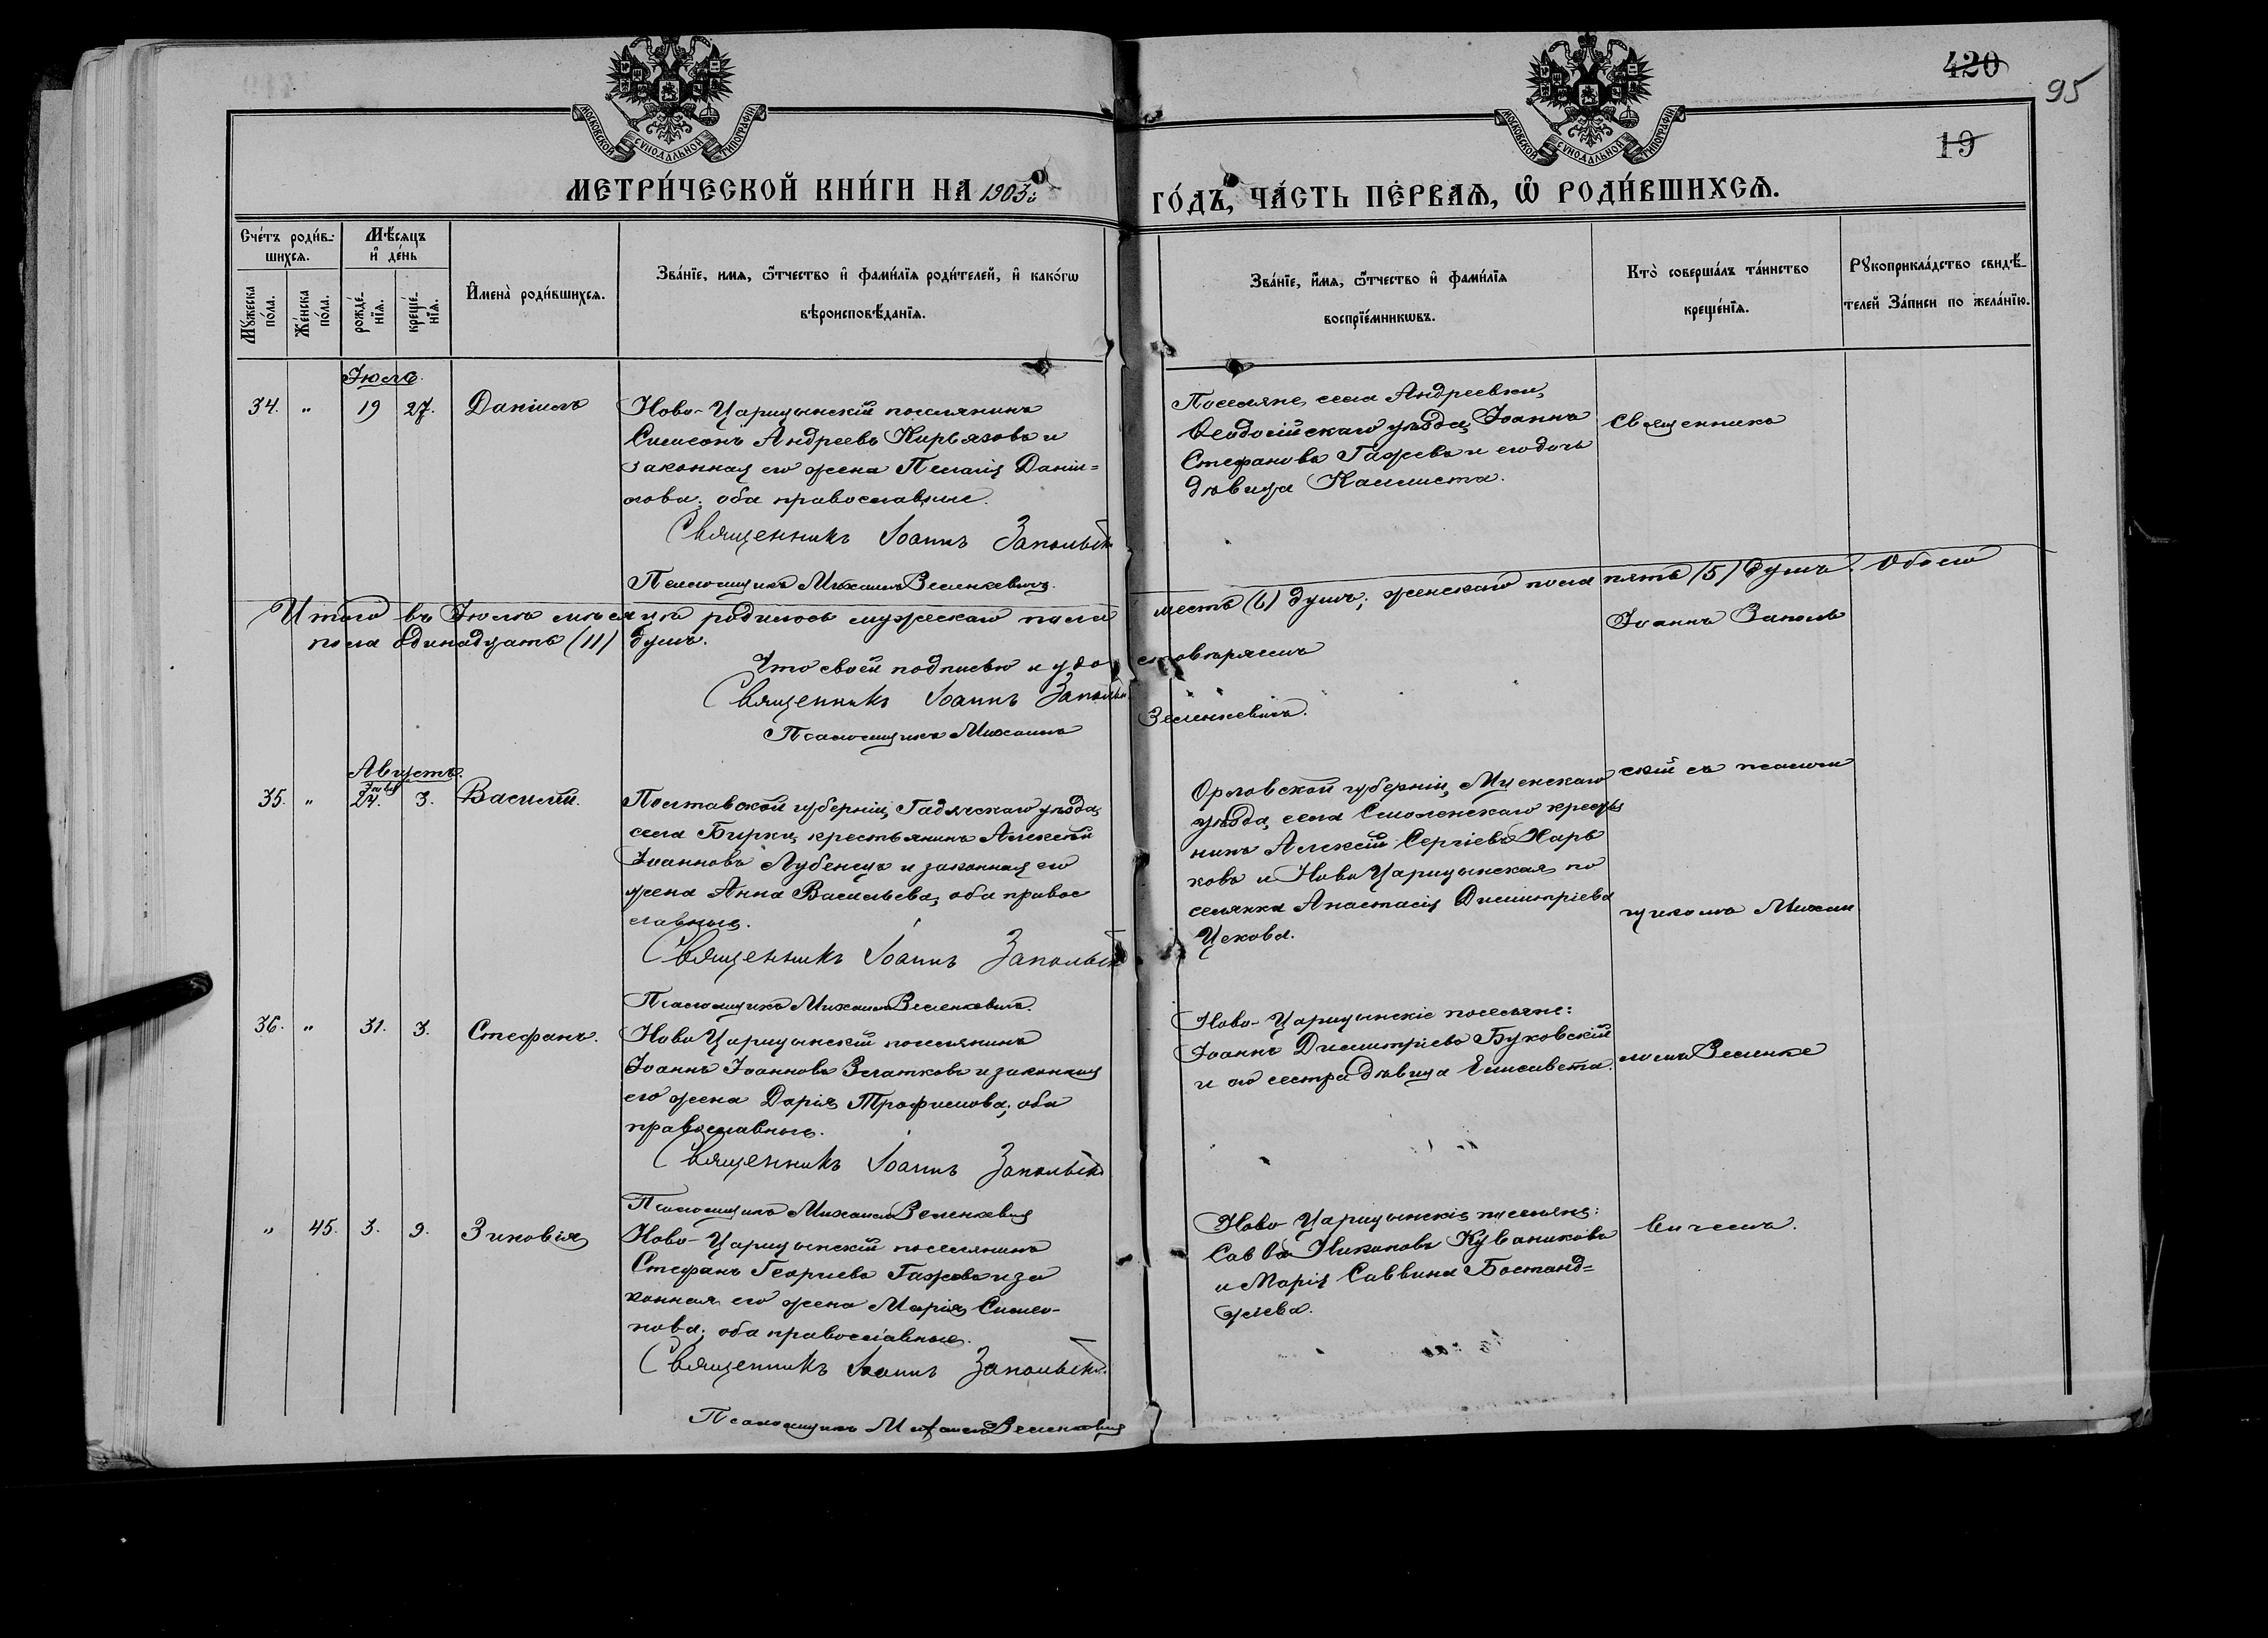 420
95
19
МОСКОВСКОЙ СѴНОДАЛЬНОЙ ТИПОГРАФІИ
МОСКОВСКОЙ СѴНОДАЛЬНОЙ ТИПОГРАФІИ
МЕТРИ́ЧЕСКОЙ КНИ́ГИ НА 1903й
ГО́ДЪ, ЧА́СТЬ ПЕ́РВАѦ, Ѡ҆ РОДИ́ВШИХСѦ.
Сче́тъ роди́в-
шихсѧ.
Мꙋ́жеска по́ла.
Же́нска по́ла.
Мѣ́сѧцъ и҆ де́нь
рожде́-
нїѧ.
креще́-
нїѧ.
И҆мена̀ роди́вшихсѧ.
Зва́нїе, имѧ, ѻ҆́тчество и҆ фами́лїѧ роди́телей, и҆ како́гѡ
вѣроисповѣ́данїѧ.
Зва́нїе, и҆́мѧ, ѻ҆́тчество и҆ фами́лїѧ
воспрїе́мникѡвъ.
Кто̀ соверша́лъ та́инство
креще́нїѧ.
Рꙋкоприкла́дство свидѣ́-
телей За́писи по жела́нїю.
Іюль.
34. " 19 27. Даніилъ
Ново-Царицынскій поселянинъ
Симеонъ Андреевъ Кирьязовъ и
законная его жена Пелагія Даніи=
лова; оба православные.
Священникъ Іоаннъ Запольск
Псаломщикъ Михаилъ Зеленкевичъ.
Поселяне села Андреевки,
Ѳеодосійскаго уѣзда, Іоаннъ
Стефановъ Гажевъ и его дочь
дѣвица Каллиста.
Священникъ
Итого въ Іюлѣ мѣсяцѣ родилось мужескаго пола шесть (6) душъ; женскаго пола пять (5) душъ. Обоего
пола одинадцать (11) душъ.
Что своей подписью и удостовѣряемъ
Священникъ Іоаннъ Запольск
Псаломщикъ Михаилъ Зеленкевичъ.
Іоаннъ Заполь
Августъ.
35. " Іюля 24. 3. Василій.
Полтавской губерніи, Гадячскаго уѣзда,
села Бирки, крестьянинъ Алексѣй
Іоанновъ Лубенецъ и законная его
жена Анна Васильева, оба правос
лавные.
Священникъ Іоаннъ Запольск
Псаломщикъ Михаилъ Зеленкевичъ.
Орловской губерніи, Мценскаго
уѣзда, села Смоленскаго крестья
нинъ Алексѣй Сергіевъ Харь
ковъ и Ново Царицынская по
селянка Анастасія Димитріева
Цехова.
скій съ псалом
щикомъ Михаи
36. " 31. 3. Стефанъ.
Ново Царицынскій поселянинъ
Іоаннъ Іоанновъ Златковъ и законная
его жена Дарія Трофимова; оба
православные.
Священникъ Іоаннъ Запольск
Псаломщикъ Михаилъ Зеленкевичъ
Ново-Царицынскіе поселяне:
Іоаннъ Димитріевъ Буховскій
и его сестра дѣвица Елисавета.
ломъ Зеленке
" 45. 3. 9. Зиновія
Ново-Царицынскій поселянинъ
Стефанъ Георгіевъ Гажевъ и за
конная его жена Марія Симео-
нова; оба православные.
Священникъ Іоаннъ Запольскі
Псаломщикъ Михаилъ Зеленкевичъ
Ново-Царицынскіе поселяне:
Савва Никоновъ Куванжиковъ
и Марія Саввина Бостанд=
жіева.
вичемъ.